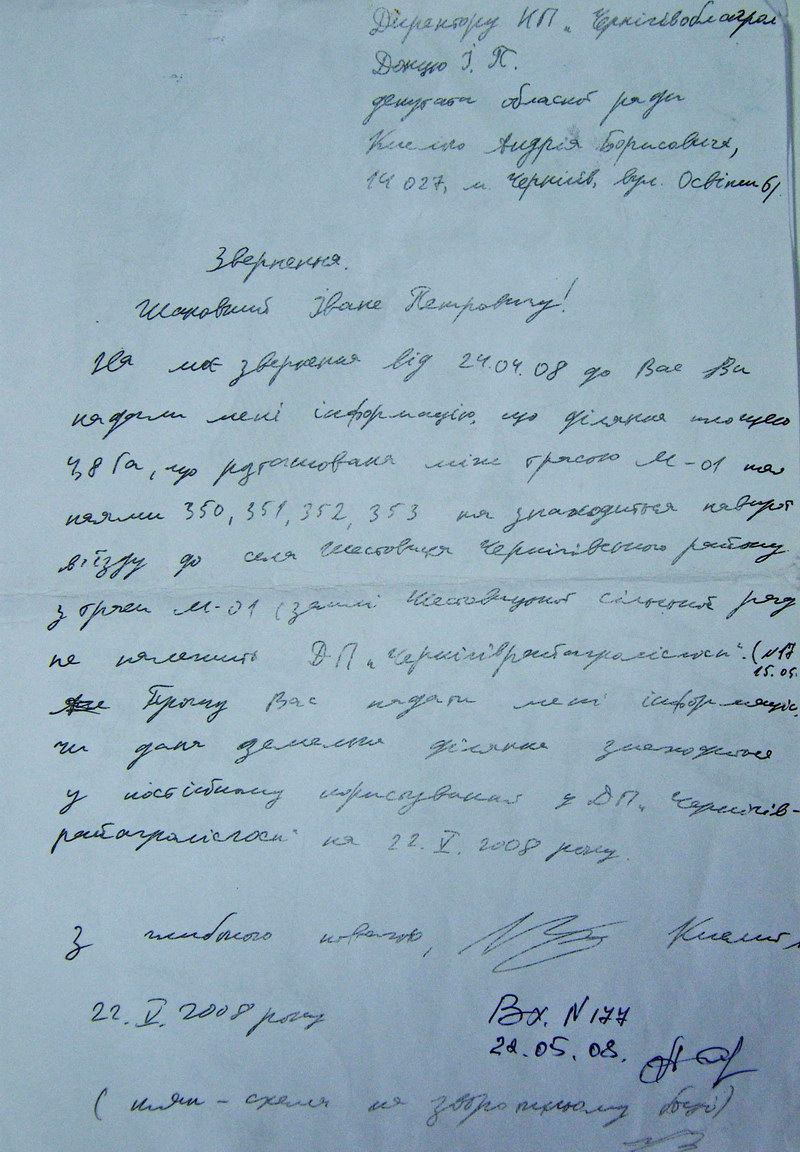 Директору КП „Чернігівоблагрол
Донцю І. П.
депутата обласної ради
Андрія Борисовича,
14027, м. Чернігів, вул. Освіти 6,
Звернення.
Шановний Іване Петровичу!
На моє звернення від 24.04.08 до Вас Ви
надали мені інформацію, що ділянка площею
3,8 Га, що розташована між трасою М-01 та
паями 350, 351, 352, 353 та знаходиться навпроти
в'їзду до села Шестовиця Чернігівського району
з траси М-01 (землі Шестовицької сільської ради
не належить ДП „Чернігіврайагролісгосп". (N17
15.05.
Прошу Вас надати мені інформацію,
чи дана земельна ділянка знаходиться
у постійному користуванні у ДП „Чернігів-
райагролісгосп" на 22. V. 2008 року.
З глибокою повагою,
22. V. 2008 року
Вх. N 177
22.05.08.
(план-схема на зворотньому боці)